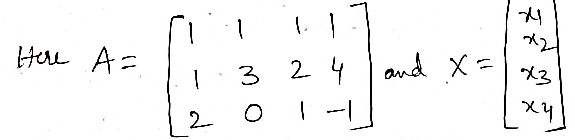 Here A = [ 1 1 1 1
1 3 2 4
2 0 1 -1 ] and X = [ x1
x2
x3
x4 ]